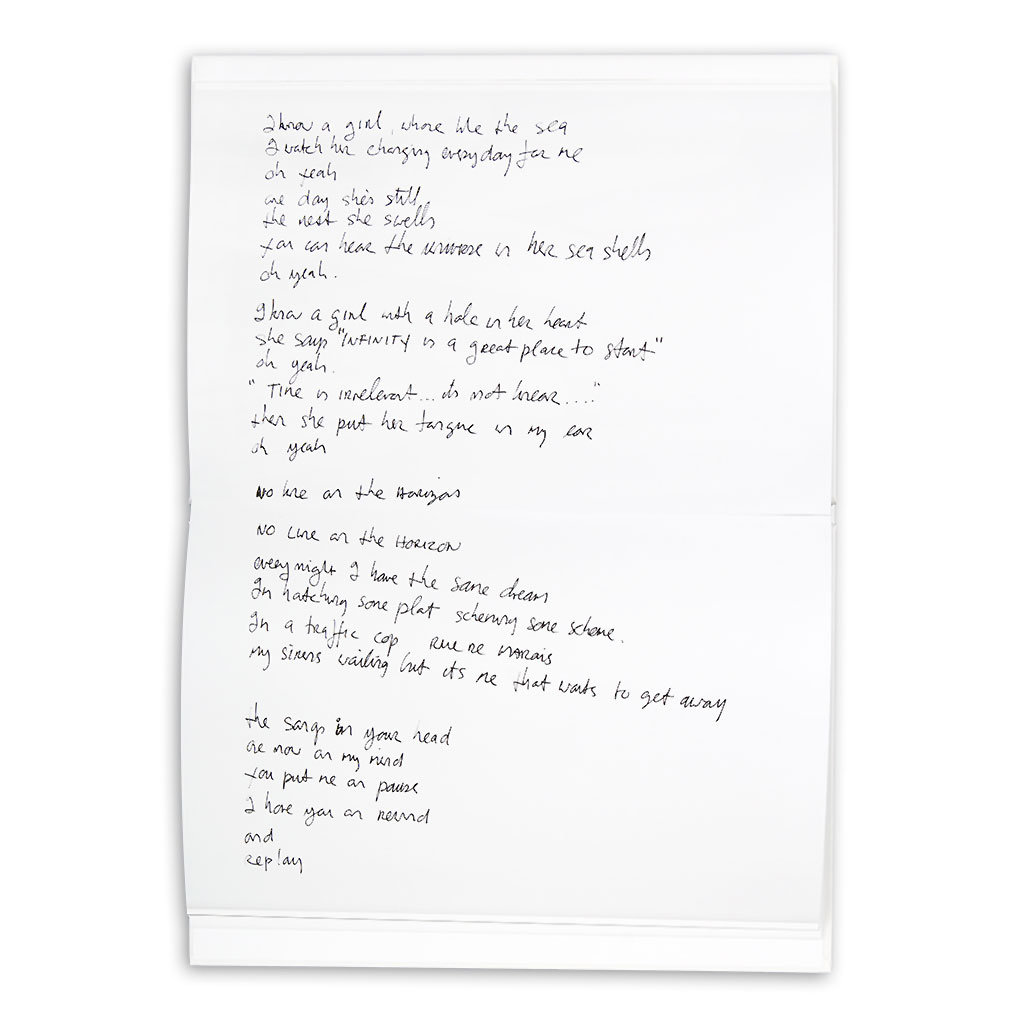 I know a girl whose like the sea
I watch her changing everyday for me
oh yeah
one day she's still,
the next she swells
you can hear the universe in her sea shells
oh yeah.
I know a girl with a hole in her heart
she says "INFINITY is a great place to start"
oh yeah.
"Time is irrelevant... its not linear...."
then she put her tongue in my ear
oh yeah
NO line on the Horizon
NO LINE on the HORIZON
every night I have the same dream
Im hatching some plot scheming some scheme.
Im a traffic cop RUE DE MARAIS
My sirens wailing but its me that wants to get away
the songs in your head
are now on my mind
you put me on pause
I have you on rewind
and
replay